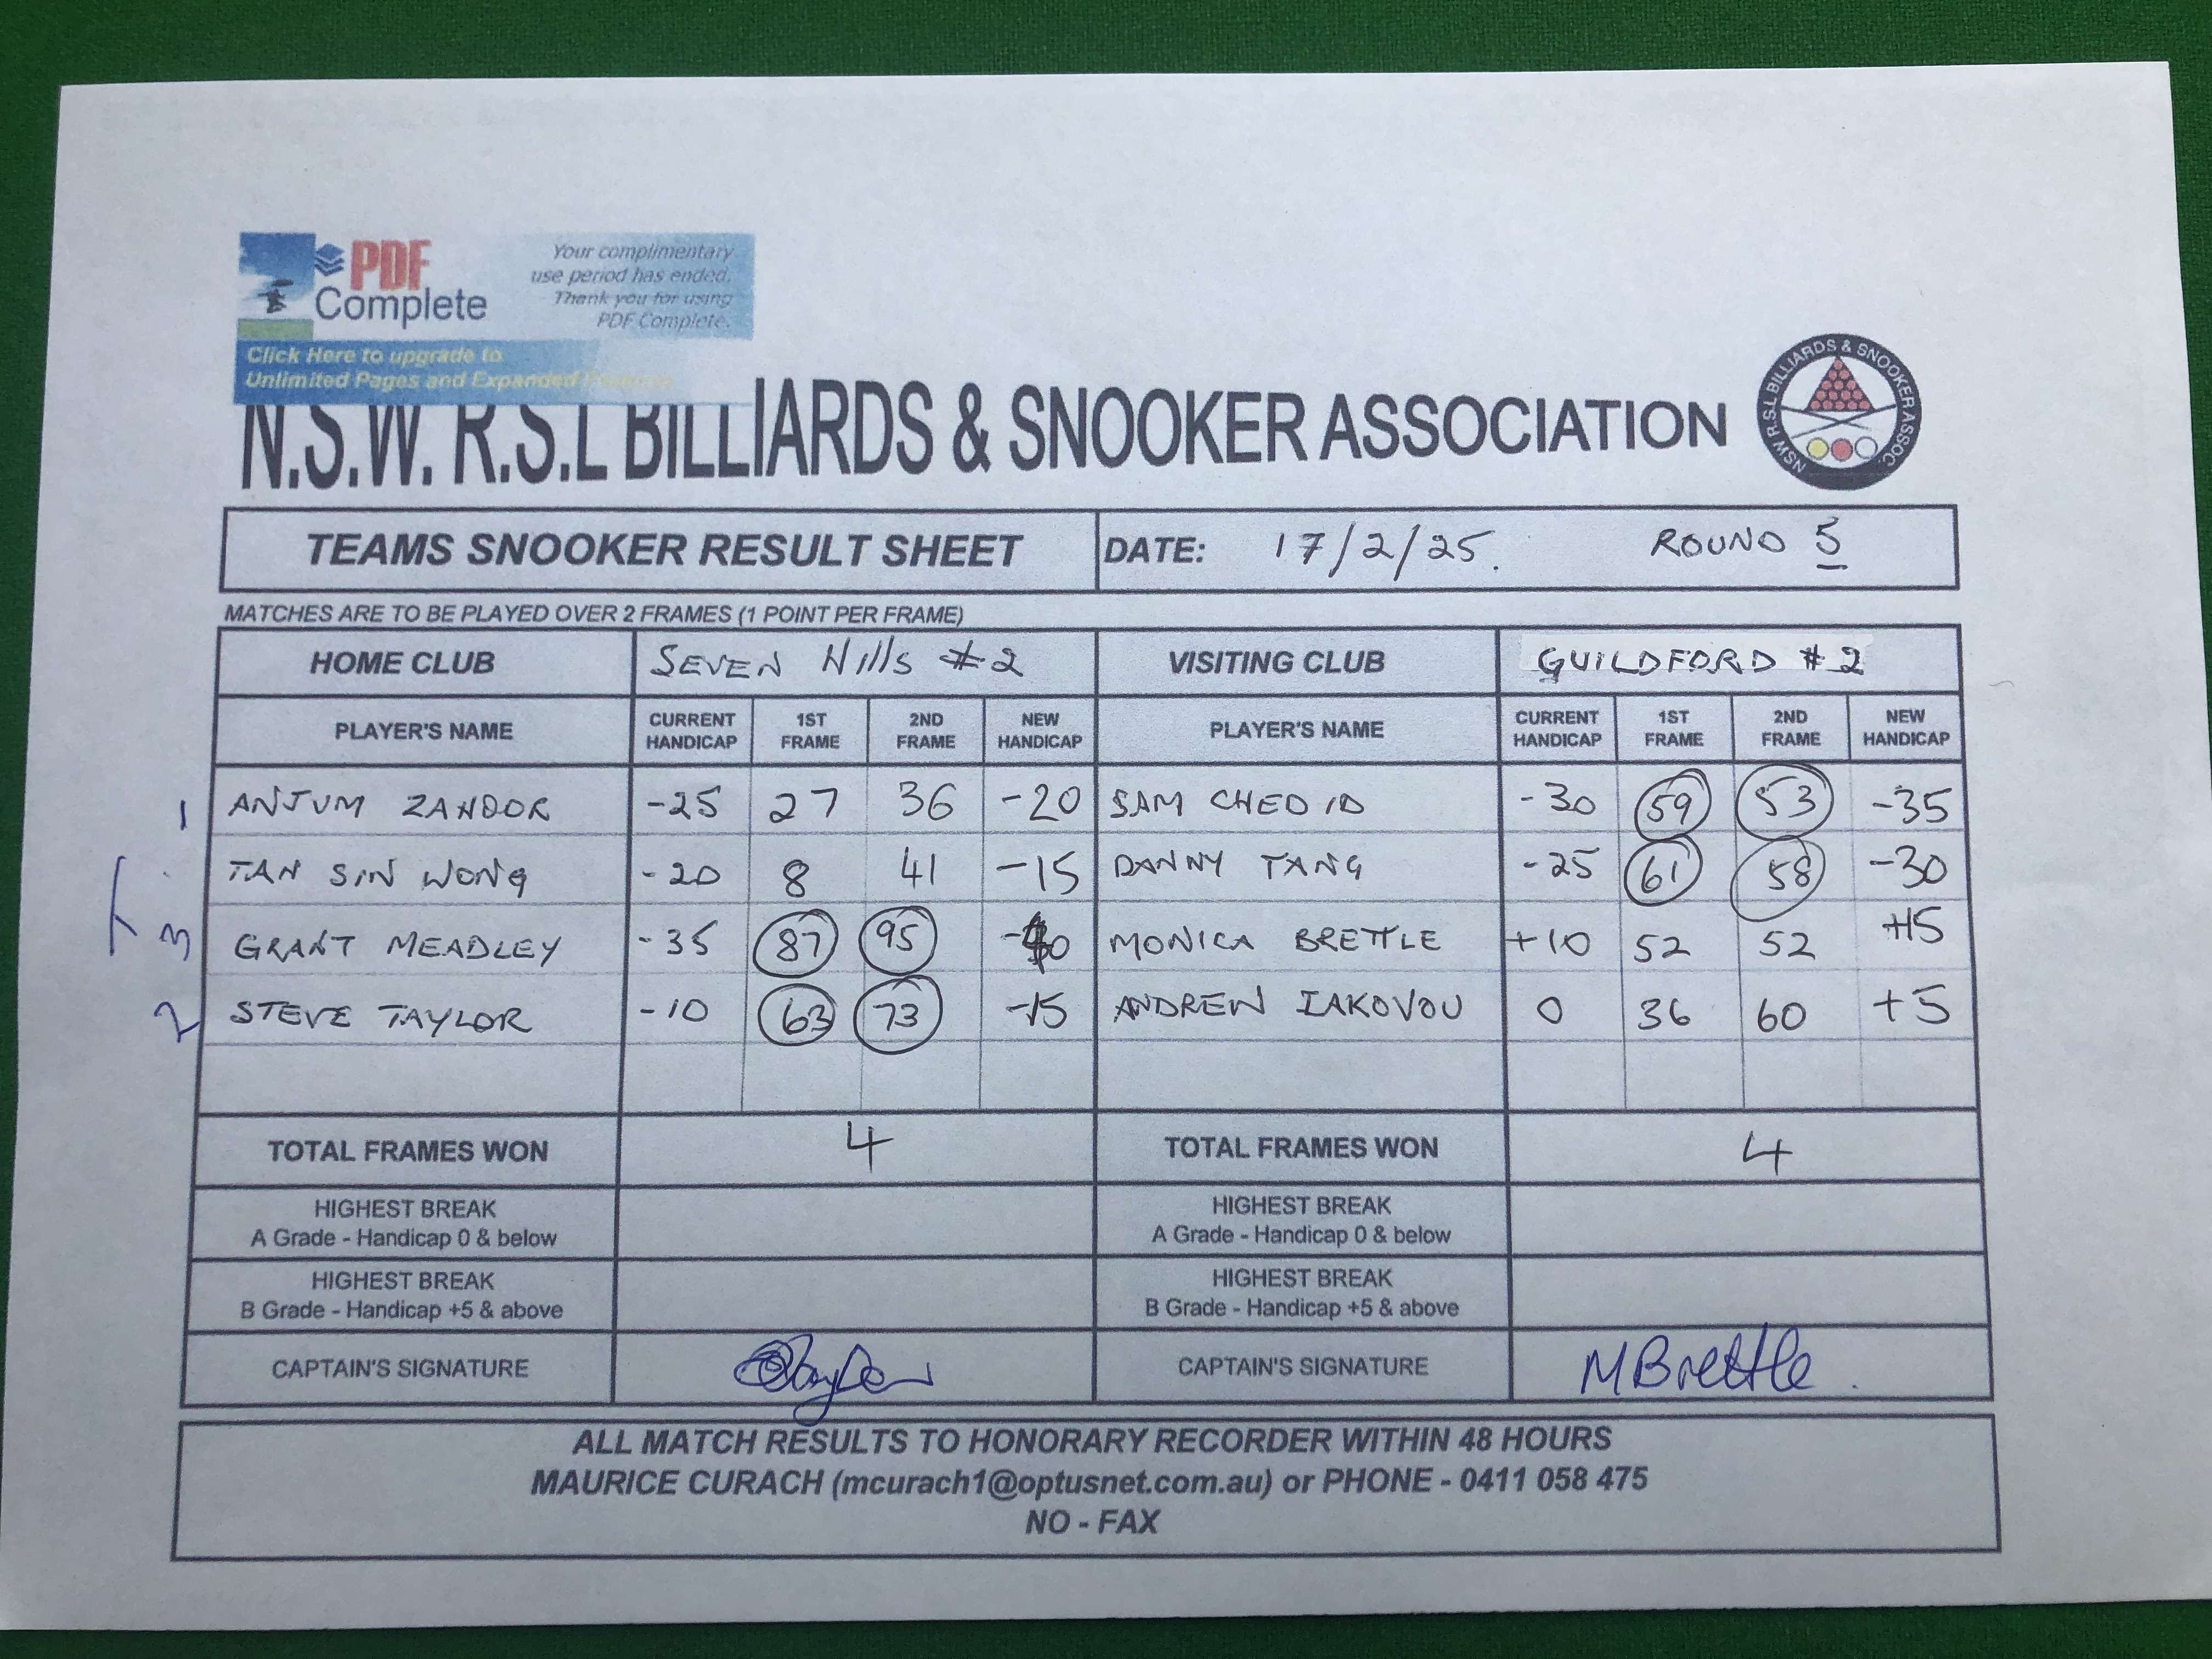 PDF
Complete
Your complimentary
use period has ended.
Thank you for using
PDF Complete.
Click Here to upgrade to
Unlimited Pages and Expanded
N.S.W. R.S.L BILLIARDS & SNOOKER ASSOCIATION
NSW R.S.L BILLIARDS & SNOOKER ASSOC.
TEAMS SNOOKER RESULT SHEET DATE: 17/2/25. ROUND 5
MATCHES ARE TO BE PLAYED OVER 2 FRAMES (1 POINT PER FRAME)
HOME CLUB SEVEN Hills #2 VISITING CLUB GUILDFORD #2
PLAYER'S NAME CURRENT HANDICAP 1ST FRAME 2ND FRAME NEW HANDICAP PLAYER'S NAME CURRENT HANDICAP 1ST FRAME 2ND FRAME NEW HANDICAP
1 ANJUM ZANDOR -25 27 36 -20 SAM CHEDID -30 59 53 -35
TAN SIN WONG -20 8 41 -15 DANNY TANG -25 61 58 -30
3 GRANT MEADLEY -35 87 95 -40 MONICA BRETTLE +10 52 52 +15
2 STEVE TAYLOR -10 63 73 -15 ANDREW IAKOVOU 0 36 60 +5
TOTAL FRAMES WON 4 TOTAL FRAMES WON 4
HIGHEST BREAK HIGHEST BREAK
A Grade - Handicap 0 & below A Grade - Handicap 0 & below
HIGHEST BREAK HIGHEST BREAK
B Grade - Handicap +5 & above B Grade - Handicap +5 & above
CAPTAIN'S SIGNATURE CAPTAIN'S SIGNATURE MBrettle.
ALL MATCH RESULTS TO HONORARY RECORDER WITHIN 48 HOURS
MAURICE CURACH (mcurach1@optusnet.com.au) or PHONE - 0411 058 475
NO - FAX